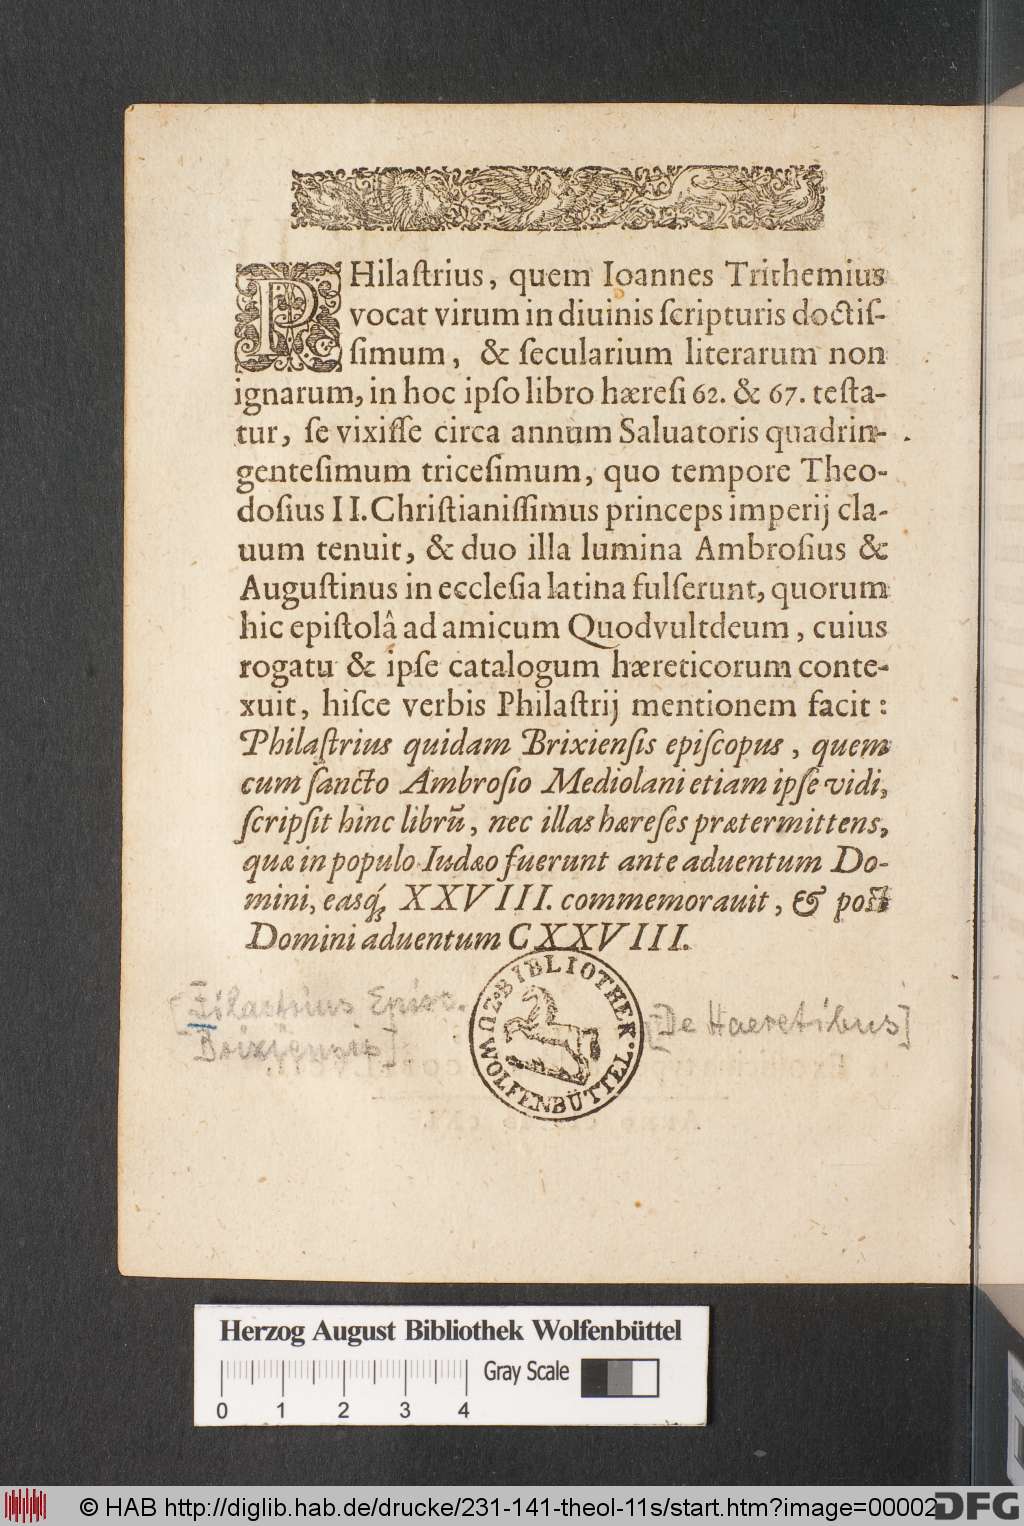 PHilaſtrius, quem Ioannes Trithemius
vocat virum in diuinis ſcripturis doctiſ-
ſimum, & ſecularium literarum non
ignarum, in hoc ipſo libro hæreſi 62. & 67. teſta-
tur, ſe vixiſſe circa annum Saluatoris quadrin-
genteſimum triceſimum, quo tempore Theo-
doſius II. Chriſtianiſſimus princeps imperij cla-
uum tenuit, & duo illa lumina Ambroſius &
Auguſtinus in eccleſia latina fulſerunt, quorum
hic epiſtolâ ad amicum Quodvultdeum, cuius
rogatu & ipſe catalogum hæreticorum conte-
xuit, hiſce verbis Philaſtrij mentionem facit:
Philaſtrius quidam Brixienſis epiſcopus, quem
cum ſancto Ambroſio Mediolani etiam ipſe vidi,
ſcripſit hinc librū, nec illas hæreſes prætermittens,
quæ in populo Iudæo fuerunt ante aduentum Do-
mini, easq́; XXVIII. commemorauit, & poſt
Domini aduentum CXXVIII.
[Filastrius Episc.
Brixiensis]
[De Haeretibus]
BIBLIOTHEK ZU WOLFENBÜTTEL.
Herzog August Bibliothek Wolfenbüttel
Gray Scale
0 1 2 3 4
© HAB http://diglib.hab.de/drucke/231-141-theol-11s/start.htm?image=00002
DFG